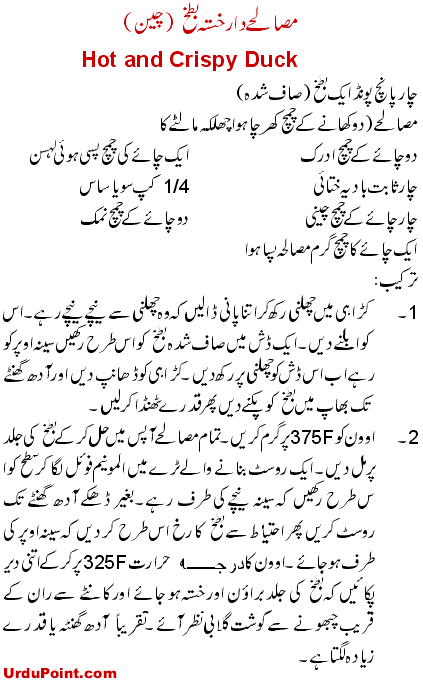 مصالحے دار خستہ بطخ (چین)
Hot and Crispy Duck
چار پانچ پونڈ ایک بطخ (صاف شدہ)
مصالحے (دو کھانے کے چمچ کھرچا ہوا چھلکہ مالٹے کا
دو چائے کے چمچ ادرک ایک چائے کی چمچ پسی ہوئی لہسن
چار ثابت بادیہ ختائی 1/4 کپ سویا ساس
چار چائے کے چمچ چینی دو چائے کے چمچ نمک
ایک چائے کا چمچ گرم مصالحہ پسا ہوا
ترکیب:
1- کڑاہی میں چھلنی رکھ کر اتنا پانی ڈالیں کہ وہ چھلنی سے نیچے نیچے رہے۔ اس
کو ابلنے دیں۔ ایک ڈش میں صاف شدہ بطخ کو اس طرح رکھیں سینہ اوپر کو
رہے اب اس ڈش کو چھلنی پر رکھ دیں۔ کڑاہی کو ڈھانپ دیں اور آدھ گھنٹے
تک بھاپ میں بطخ کو پکنے دیں پھر قدرے ٹھنڈا کر لیں۔
2- اوون کو 375F پر گرم کریں۔ تمام مصالحے آپس میں حل کر کے بطخ کی جلد
پر مل دیں۔ ایک روسٹ بنانے والے ٹرے میں المونیم فوئل لگا کر سطح کو ا
س طرح رکھیں کہ سینہ نیچے کی طرف رہے۔ بغیر ڈھکے آدھ گھنٹے تک
روسٹ کریں پھر احتیاط سے بطخ کا رخ اس طرح کر دیں کہ سینہ اوپر کی
طرف ہو جائے۔ اوون کا درجہ حرارت 325F پر کر کے اتنی دیر
پکائیں کہ بطخ کی جلد براؤن اور خستہ ہو جائے اور کانٹے سے ران کے
قریب چھونے سے گوشت گلابی نظر آئے۔ تقریباً آدھ گھنٹہ یا قدرے
زیادہ لگتا ہے۔
UrduPoint.com